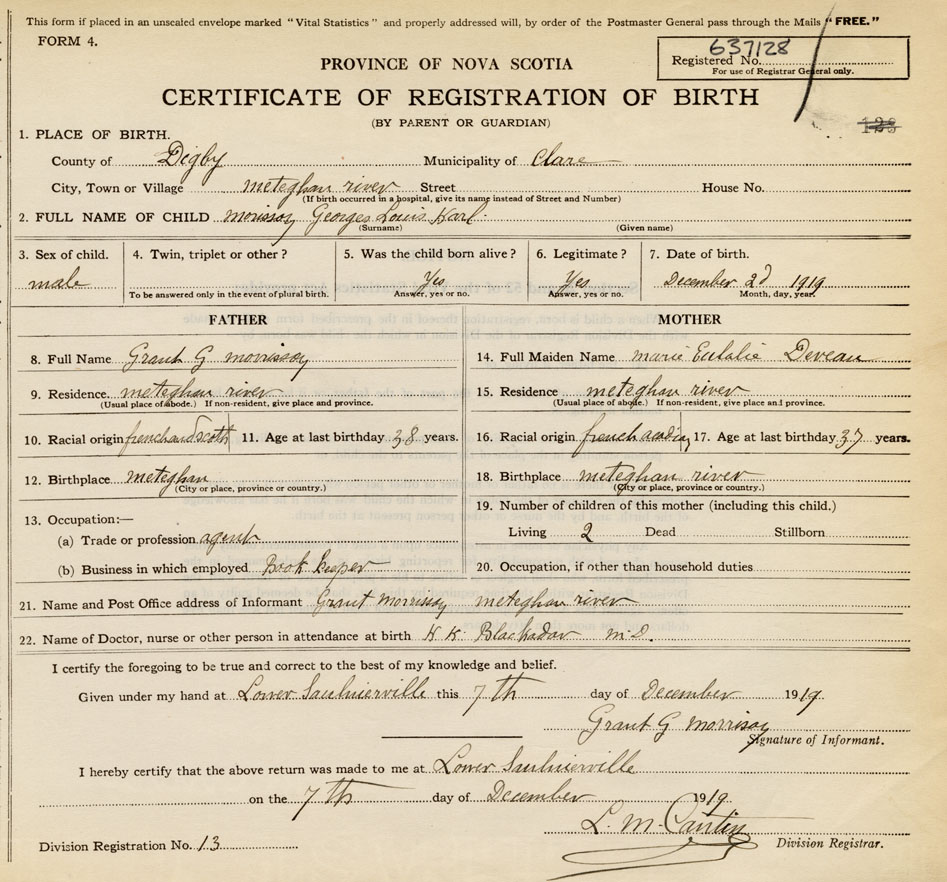 This form if placed in an unsealed envelope marked "Vital Statistics" and properly addressed will, by order of the Postmaster General pass through the Mails "FREE."
FORM 4.
637128
Registered No.
For use of Registrar General only.
PROVINCE OF NOVA SCOTIA
CERTIFICATE OF REGISTRATION OF BIRTH
(BY PARENT OR GUARDIAN)
123
1. PLACE OF BIRTH.
County of Digby Municipality of Clare
City, Town or Village meteghan river Street House No.
(If birth occurred in a hospital, give its name instead of Street and Number)
2. FULL NAME OF CHILD morissoy Georges Louis Karl
(Surname) (Given name)
3. Sex of child. 4. Twin, triplet or other? 5. Was the child born alive? 6. Legitimate? 7. Date of birth.
male Yes Yes December 2d 1919
To be answered only in the event of plural birth. Answer, yes or no. Answer, yes or no. Month, day, year.
FATHER MOTHER
8. Full Name Grant G morrissoy 14. Full Maiden Name marie Eulalie Deveau
9. Residence. meteghan river 15. Residence meteghan river
(Usual place of abode.) If non-resident, give place and province. (Usual place of abode.) If non-resident, give place and province.
10. Racial origin french and scoth 11. Age at last birthday 38 years. 16. Racial origin french 17. Age at last birthday 37 years.
12. Birthplace meteghan 18. Birthplace meteghan river
(City or place, province or country.) (City or place, province or country.)
19. Number of children of this mother (including this child.)
13. Occupation:—
(a) Trade or profession agent Living 2 Dead Stillborn
(b) Business in which employed Book keeper 20. Occupation, if other than household duties
21. Name and Post Office address of Informant Grant Morrissoy meteghan river
22. Name of Doctor, nurse or other person in attendance at birth Blackadar m.D.
I certify the foregoing to be true and correct to the best of my knowledge and belief.
Given under my hand at Lower Saulnierville this 7th day of December 1919
Grant G Morrisoy
Signature of Informant.
I hereby certify that the above return was made to me at Lower Saulnierville
on the 7th day of December 1919
L. M. 
Division Registration No. 13 Division Registrar.